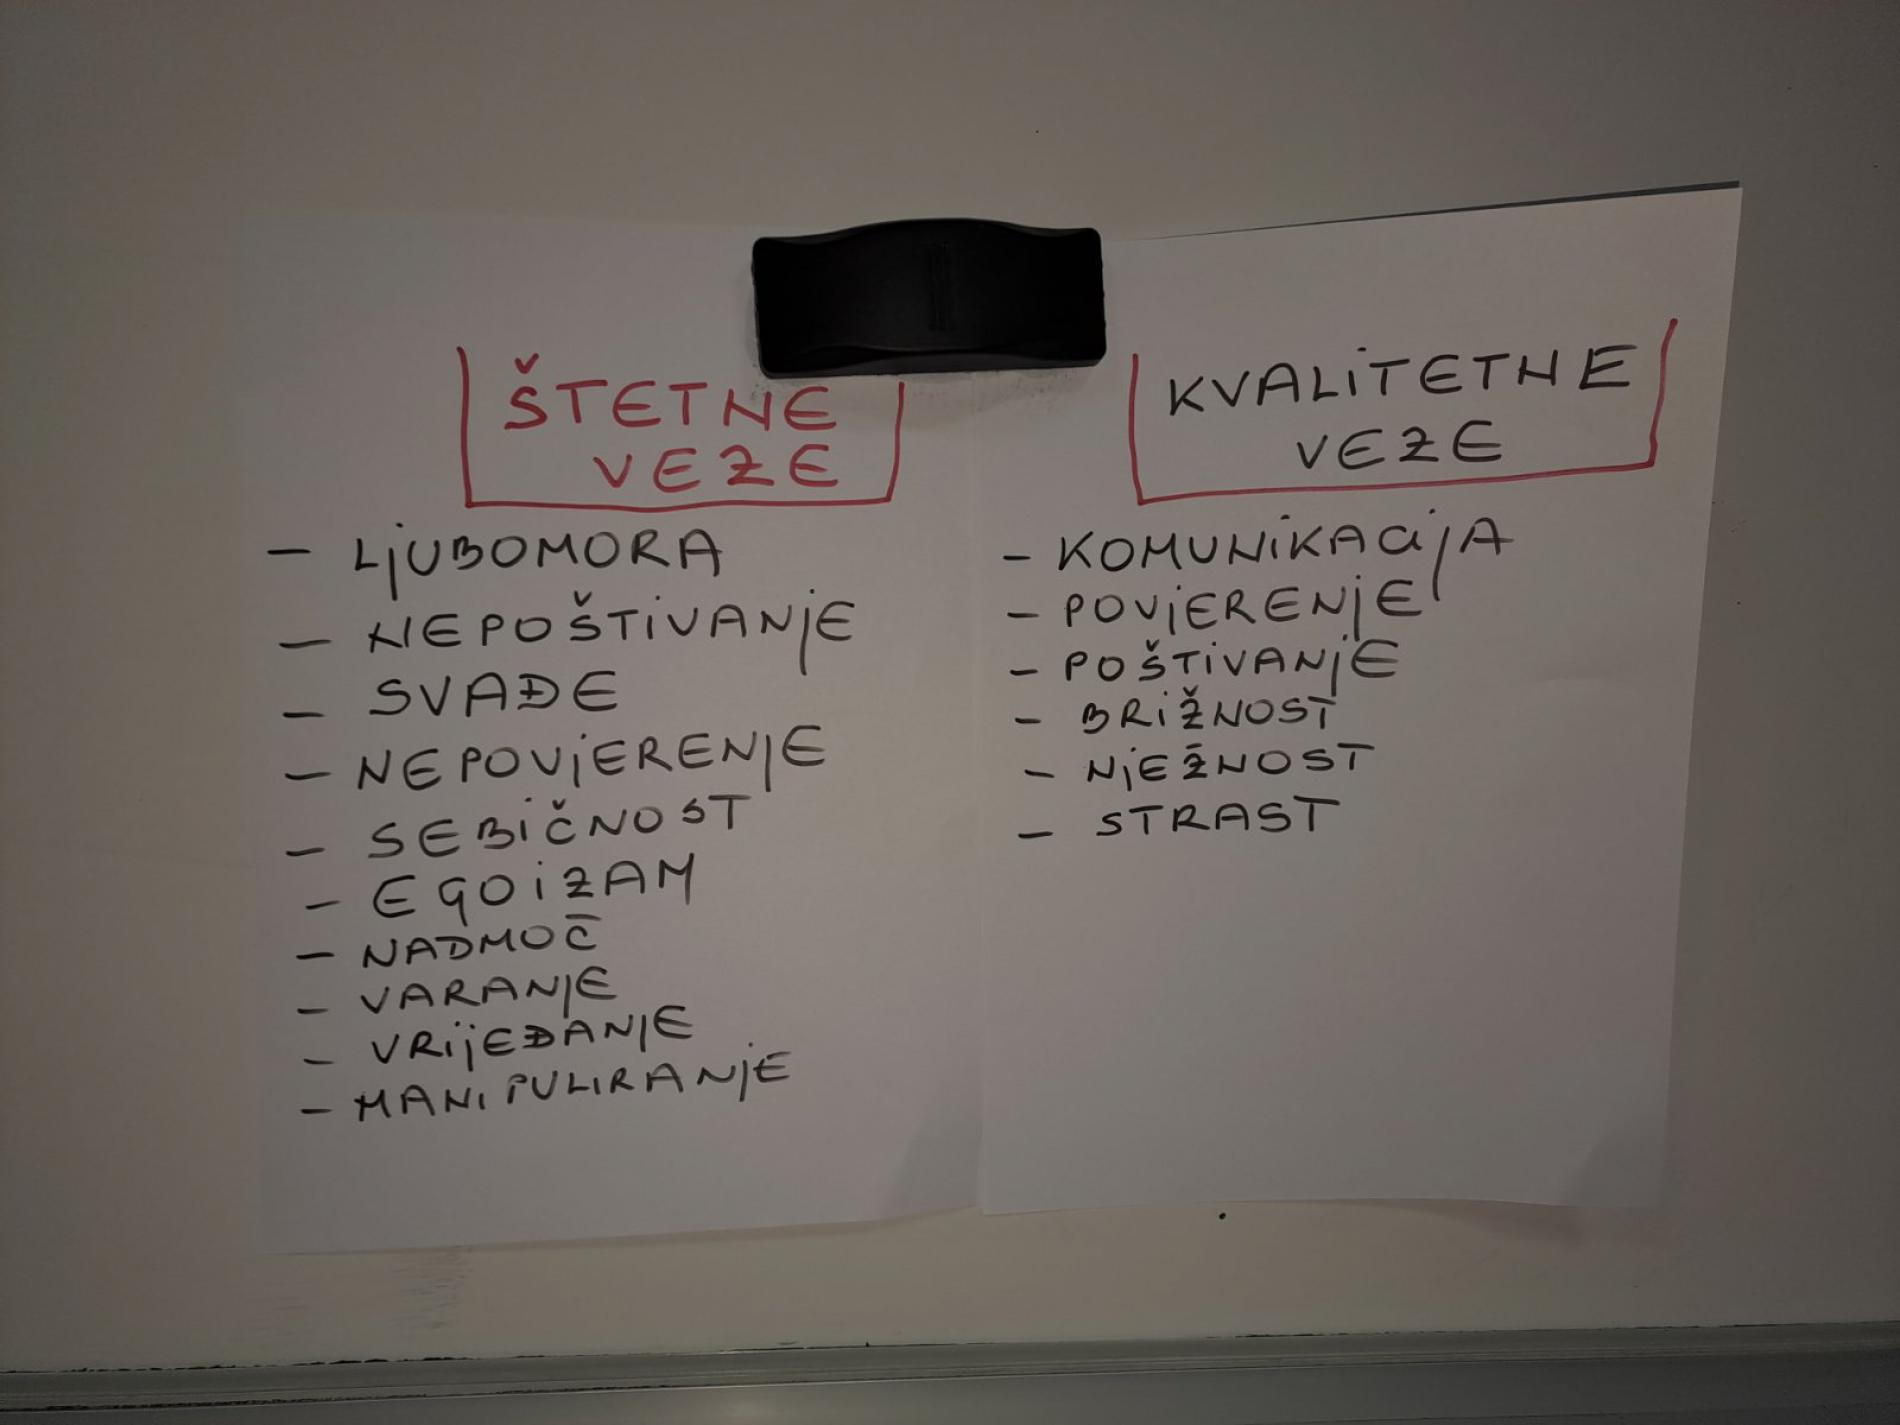 ŠTETNE
VEZE
- LJUBOMORA
- NEPOŠTIVANJE
- SVAĐE
- NEPOVJERENJE
- SEBIČNOST
- EGOIZAM
- NADMOČ
- VARANJE
- VRIJEĐANJE
- MANIPULIRANJE
KVALITETNE
VEZE
- KOMUNIKACIJA
- POVJERENJE
- POŠTIVANJE
- BRIŽNOST
- NJEŽNOST
- STRAST